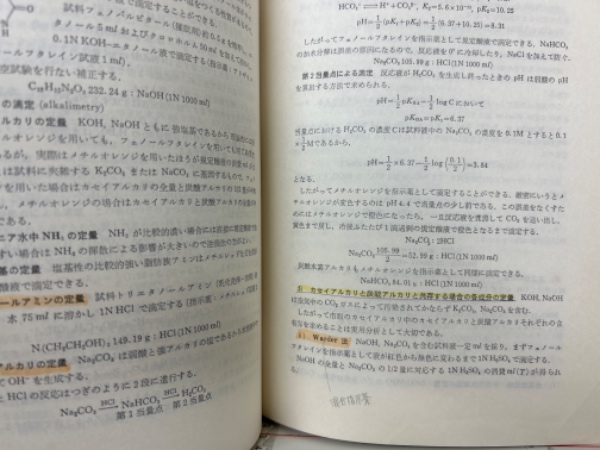 試料フェノバルビタール(
タノール5mlおよびクロロホルム50mlを加えて
0.1N KOH-エタノール液で滴定する(指示薬:
ールフタレイン試液1ml).
空試験を行ない補正する.
C₁₂H₁₂N₂O₃ 232.24g:NaOH(1N 1000ml)
の滴定 (alkalimetry)
アルカリの定量 KOH, NaOHともに強塩基であるから
ルオレンジを用いても,フェノールフタレインを用いても
あるが,実際はメチルオレンジを用いたほうが
は試料に夾雑する K₂CO₃ または NaCO₃ に
を用いた場合はカセイアルカリの全量と炭酸アルカリの1/2量が
,メチルオレンジの場合はカセイアルカリと炭酸アルカリの
である.
ニア水中NH₃の定量 NH₃が比較的濃い場合には
すい場合は NH₃ の揮散による影響が大きいので
基の定量 塩基性の比較的強い脂肪族アミンはメチルレッド
酸液で滴定できる.
ールアミンの定量 試料トリエタノールアミン
水75mlに溶かし1N HClで滴定する(指示薬:メチルレッド
N(CH₂CH₂OH)₃ 149.19g:HCl(1N 1000ml)
アルカリの定量 Na₂CO₃は弱酸と強アルカリの塩であるため
て OH⁻ を生成する.
と HCl の反応はつぎのように2段に進行する.
Na₂CO₃ HCl→ NaHCO₃ HCl→ H₂CO₃
第1当量点 第2当量点
HCO₃⁻⇄H⁺+CO₃²⁻, K₂=5.6×10⁻¹¹, pK₂=10.25
pH=1/2(pK₁+pK₂)=1/2(6.37+10.25)=8.31
したがってフェノールフタレインを指示薬として規定酸液で滴定できる. NaHCO₃
の加水分解は誤差の原因になるので,反応液を0°に冷却したり, NaClを加えて防ぐ.
Na₂CO₃ 105.99g:HCl(1N 1000ml)
第2当量点による滴定 反応液が H₂CO₃ を生成し終ったときの pH は弱酸の pH
を算出する方法で求められる.
pH=1/2 pKHA−1/2 log C において
pKHA=pK₁=6.37
当量点における H₂CO₃ の濃度Cは試料液中の Na₂CO₃ の濃度を0.1Mとすると0.1
×1/2Mであるから,
pH=1/2×6.37−1/2 log(0.1/2)=3.84
となる.
したがってメチルオレンジを指示薬として滴定することができる.厳密にいうとメ
チルオレンジが変色するのは pH 4.4 で当量点の少し前である.この誤差をなくすた
めにはメチルオレンジで橙色になったら,一旦反応液を煮沸して CO₂ を追い出し,
黄色まで戻し,冷後ふたたび1滴過剰の規定酸液で橙色となるまで滴定する.
Na₂CO₃:2HCl
Na₂CO₃ 105.99/2=52.99g:HCl(1N 1000ml)
炭酸水素アルカリもメチルオレンジを指示薬として同様に滴定できる.
NaHCO₃ 84.01g:HCl(1N 1000ml)
5) カセイアルカリと炭酸アルカリと共存する場合の各成分の定量 KOH, NaOH
は空気中の CO₂ ガスによって汚染されてかならず K₂CO₃, Na₂CO₃ を含む.
したがって市販のカセイアルカリ中のカセイアルカリと炭酸アルカリそれぞれの含
有%を求めることは実用分析として大切である.
i) Warder 法 NaOH, Na₂CO₃を含む試料液一定mlを採り,まずフェノール
フタレインを指示薬として液が紅色から無色に変わるまで 1N H₂SO₄ で滴定する.
NaOH の全量と Na₂CO₃ の1/2量に対応する 1N H₂SO₄ の消費ml(Y)が得られ
る.
混合指示薬